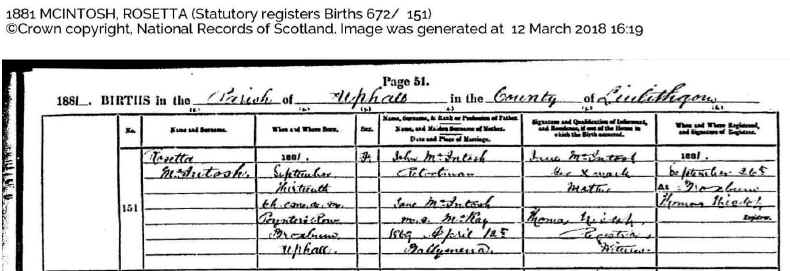 1881 MCINTOSH, ROSETTA (Statutory registers Births 672/ 151)
©Crown copyright, National Records of Scotland. Image was generated at 12 March 2018 16:19
Page 51.
1881. BIRTHS in the Parish of Uphall in the County of Linlithgow
No. Name and Surname. When and Where Born. Sex. Name, Surname, & Rank or Profession of Father. Name, and Maiden Surname of Mother. Date and Place of Marriage. Signature and Qualification of Informant, and Residence, if out of the House in which the Birth occurred. When and Where Registered, and Signature of Registrar.
151
Rosetta
McIntosh
1881.
September
Thirteenth
Row
Broxburn
Uphall
F
John McIntosh
Jane McIntosh
m.s. McKay
1869 April 12
Ballymena
Jane McIntosh
her X mark
Mother
Thomas
Registrar
Witness
1881.
September 26
At Broxburn
Thomas
Registrar.